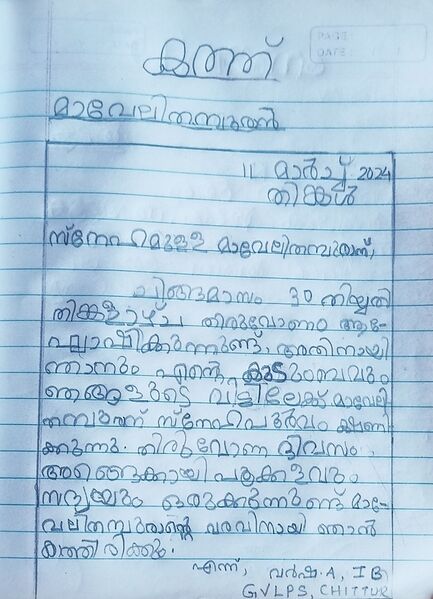 കത്ത്
PAGE:
DATE:
മാവേലിതമ്പുരാൻ
11 മാർച്ച് 2024
തിങ്കൾ
സ്നേഹമുള്ള മാവേലിതമ്പുരാന്,
ചിങ്ങമാസം 30 തിയ്യതി
തിങ്കളാഴ്ച തിരുവോണം ആ-
ഘോഷിക്കുന്നുണ്ട്. അതിനായി
ഞാനും എന്റെ കുടുംബവും
ഞങ്ങളുടെ വീട്ടിലേക്ക് മാവേലി
തമ്പുരാന് സ്നേഹപൂർവം ക്ഷണി
ക്കുന്നു. തിരുവോണ ദിവസം
അങ്ങേക്കായി പൂക്കളവും
സദ്യയും ഒരുക്കുന്നുണ്ട് മാവേ-
വലിതമ്പുരാന്റെ വരവിനായി ഞാൻ
കാത്തിരിക്കും.
എന്ന്, വർഷ.A, I B
G.V.L.P.S, CHITTUR